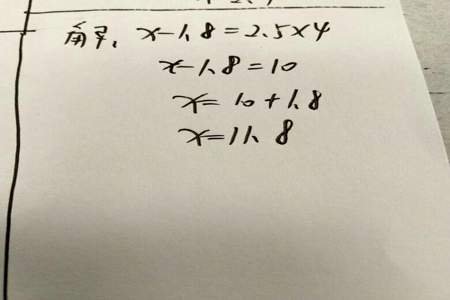 解: x-1.8=2.5×4
x-1.8=10
x=10+1.8
x=11.8